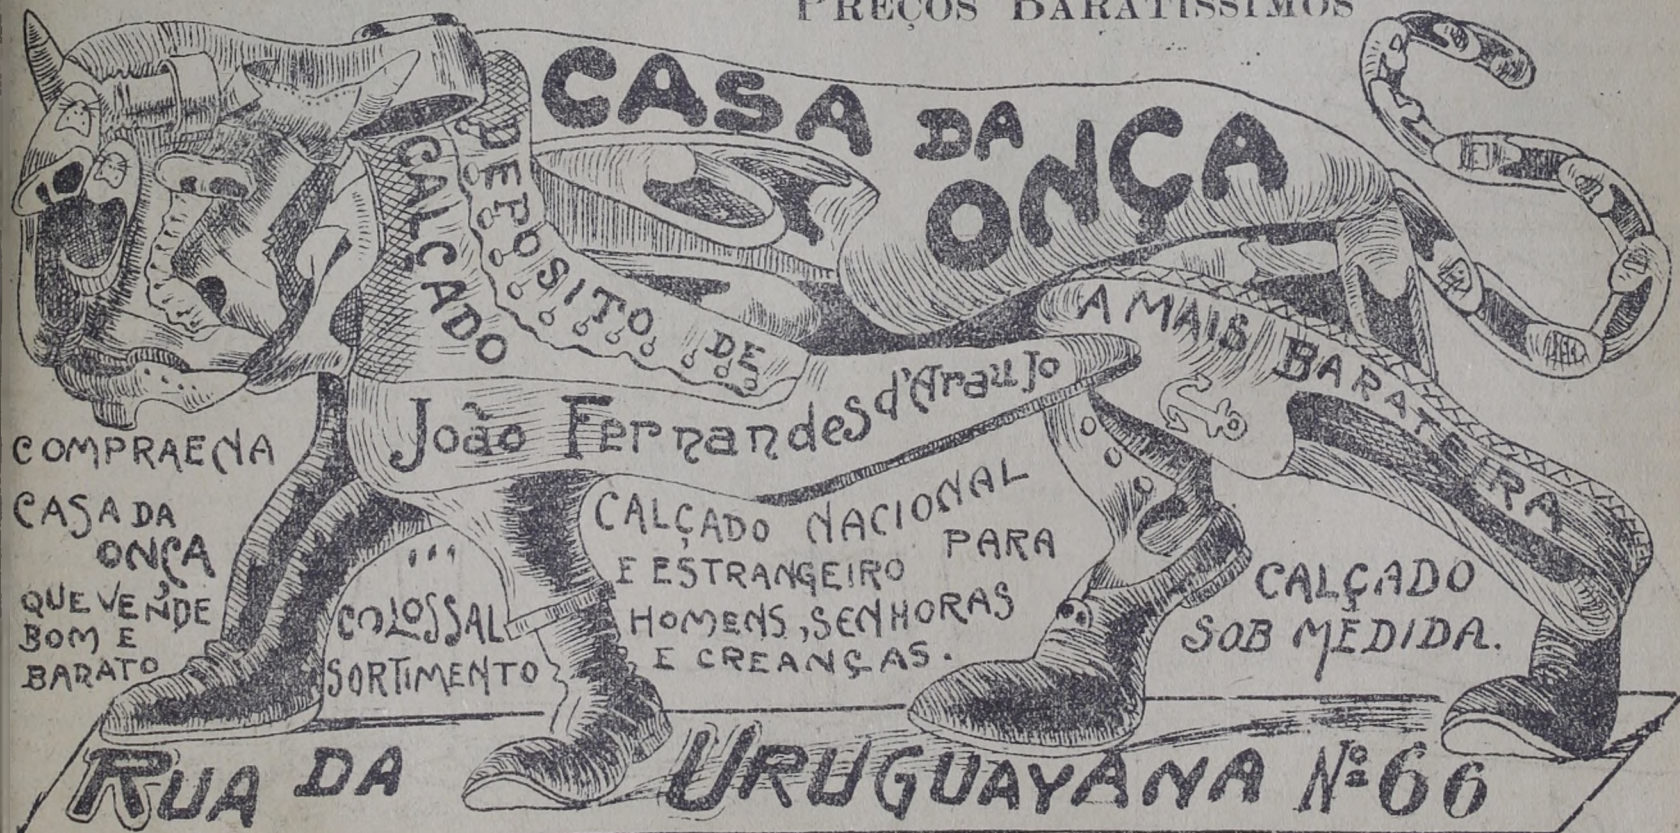 PREÇOS BARATISSIMOS
CASA DA
ONÇA
DEPOSITO DE
CALÇADO
João Fernandes d'Araujo
A MAIS BARATEIRA
COMPRAE NA
CASA DA
ONÇA
QUE VENDE
BOM E
BARATO
COLOSSAL
SORTIMENTO
CALÇADO NACIONAL
E ESTRANGEIRO PARA
HOMENS, SENHORAS
E CREANÇAS.
CALÇADO
SOB MEDIDA.
RUA DA URUGUAYANA Nº 66